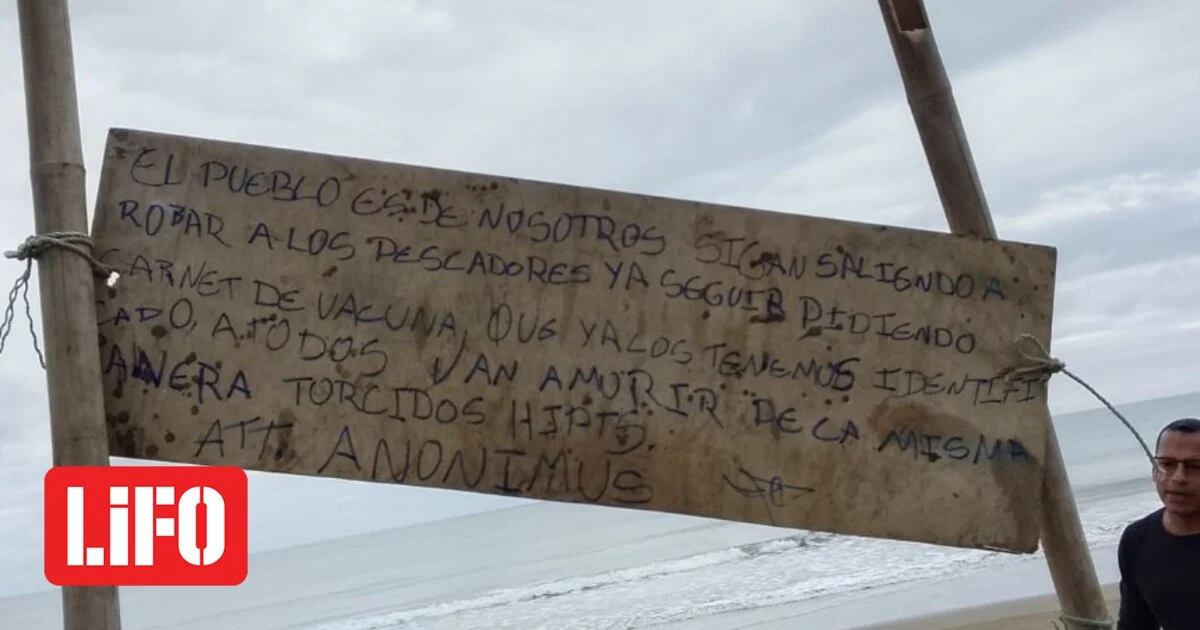 EL PUEBLO ES DE NOSOTROS SIGAN SALIENDO A
ROBAR A LOS PESCADORES YA SEGUIR PIDIENDO
CARNET DE VACUNA, QUE YA LOS TENEMOS IDENTIFI
CADO, A TODOS VAN A MURIR DE LA MISMA
ANERA TORCIDOS HIPTS.
ATT. ANONIMUS
LiFO